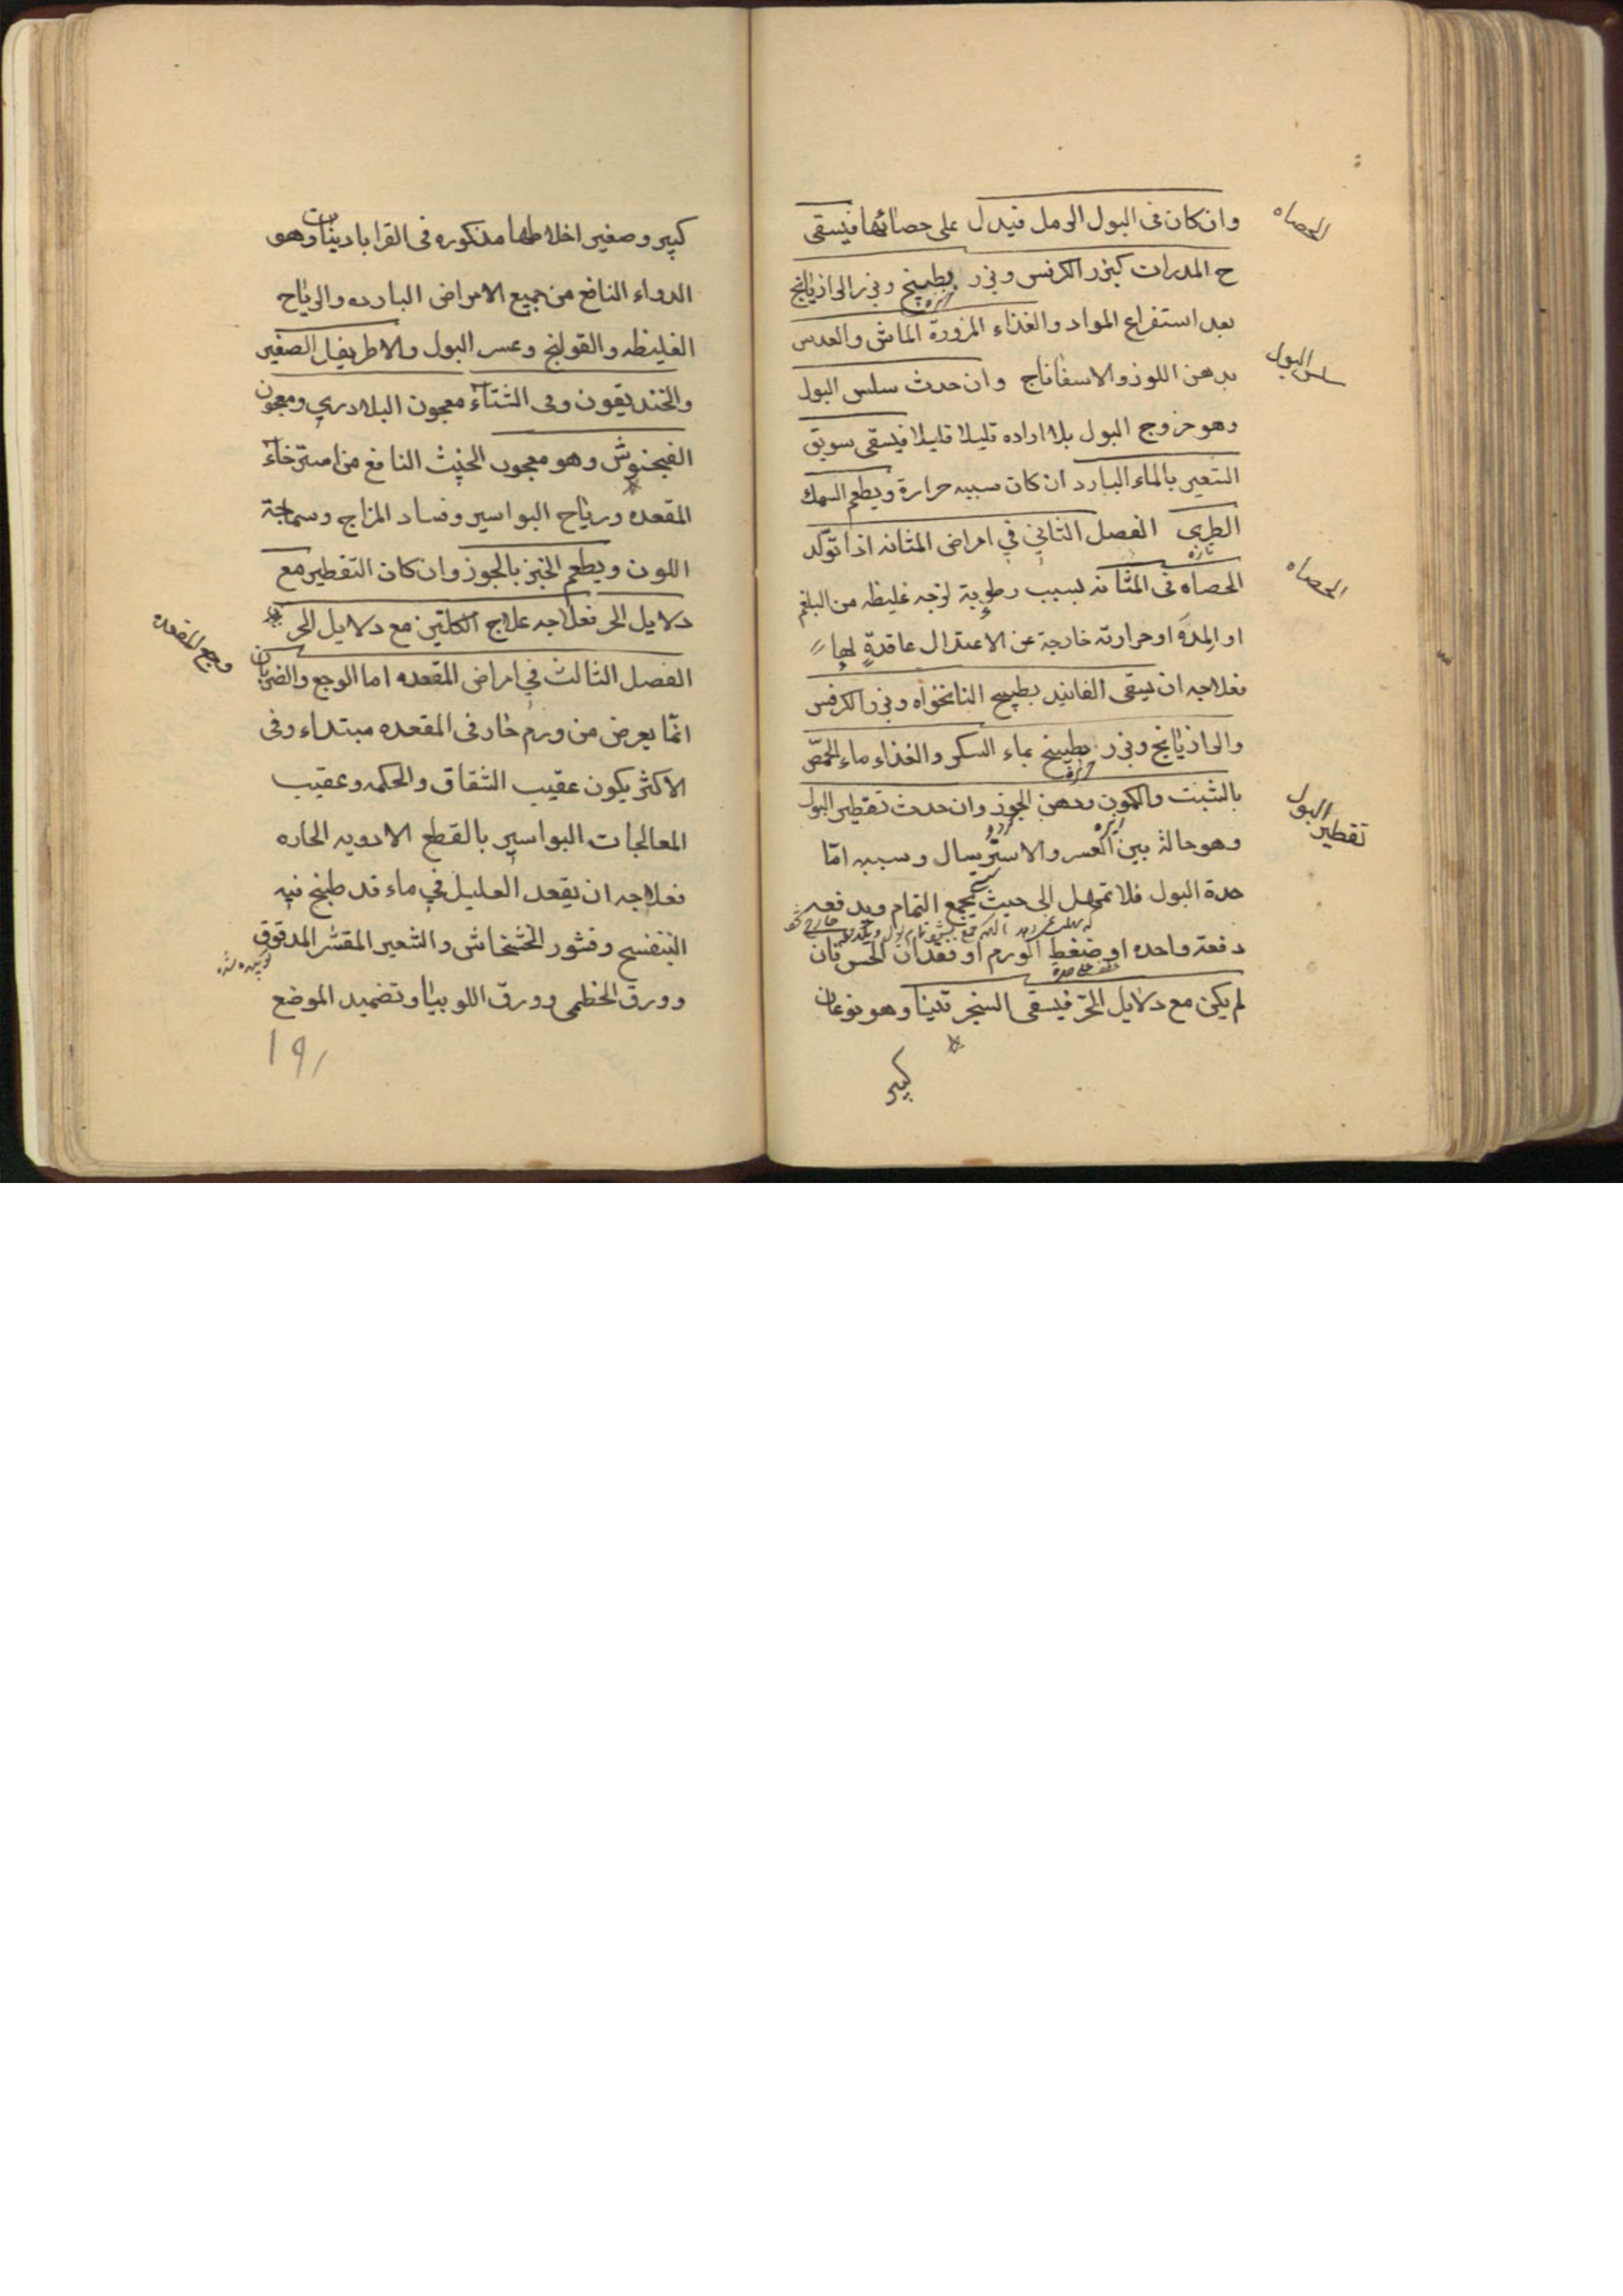 الحصاه
وان كان فى البول الرمل فيدل على حصاتها فيسقى
ح المدرات كبزر الكرفس وبزر بطيخ وبزر الرازيانج
بعد استفراغ المواد والغذاء المزورة الماش والعدس
سلس البول
بدهن اللوز والاسفاناج وان حدث سلس البول
وهو خروج البول بلا اراده قليلا قليلا فيسقى سويق
الشعير بالماء البارد ان كان سببه حرارة ويطعم السمك
الطري الفصل الثاني في امراض المثانه اذا تولد
تازه
الحصاه
الحصاه فى المثانه بسبب رطوبة لزجه غليظه من البلغم
او المدة او حرارته خارجة عن الاعتدال عاقدة لها
فعلاجه ان يسقى الفانيد بطبيخ النانخواه وبزر الكرفس
والرازيانج وبزر بطيخ بماء السكر والغذاء ماء الحمص
تقطير البول
بالشبت والكمون ودهن الجوز وان حدث تقطير البول
وهو حالة بين العسر والاسترسال وسببه امّا
حدة البول فلا تمهل الى حيث يجمع التمام ويدفعه
دفعة واحده او ضغط الورم او فقدان الحس فان
لم يكن مع دلايل الحرّ فيسقى السنجرنينا وهو نوعان
كبير
كبير وصغير اخلاطها مذكوره فى القراباديناب وهو
الدواء النافع من جميع الامراض البارده والرياح
الغليظه والقولنج وعسر البول والاطريفل الصغير
والخنديقون وفى الشتاء معجون البلادري ومعجون
الفنجنوش وهو معجون الخبث النافع من استرخاء
المقعده ورياح البواسير وفساد المزاج وسماجة
اللون ويطعم الخبز بالجوز وان كان التقطير مع
دلايل الحر فعلاجه علاج الكلتين مع دلايل الحر
وجع المقعده
الفصل الثالث في امراض المقعده اما الوجع والضربان
انمّا يعرض من ورم حار فى المقعده مبتداء وفى
الاكثر يكون عقيب الشقاق والحكه وعقيب
المعالجات البواسير بالقطع الادويه الحاره
فعلاجه ان يقعد العليل في ماء قد طبخ فيه
البنفسج وقشور الخشخاش والشعير المقشر المدقوق
كوبيده شده
وورق الخطمى وورق اللوبيا وتضميد الموضع
۱۹۱